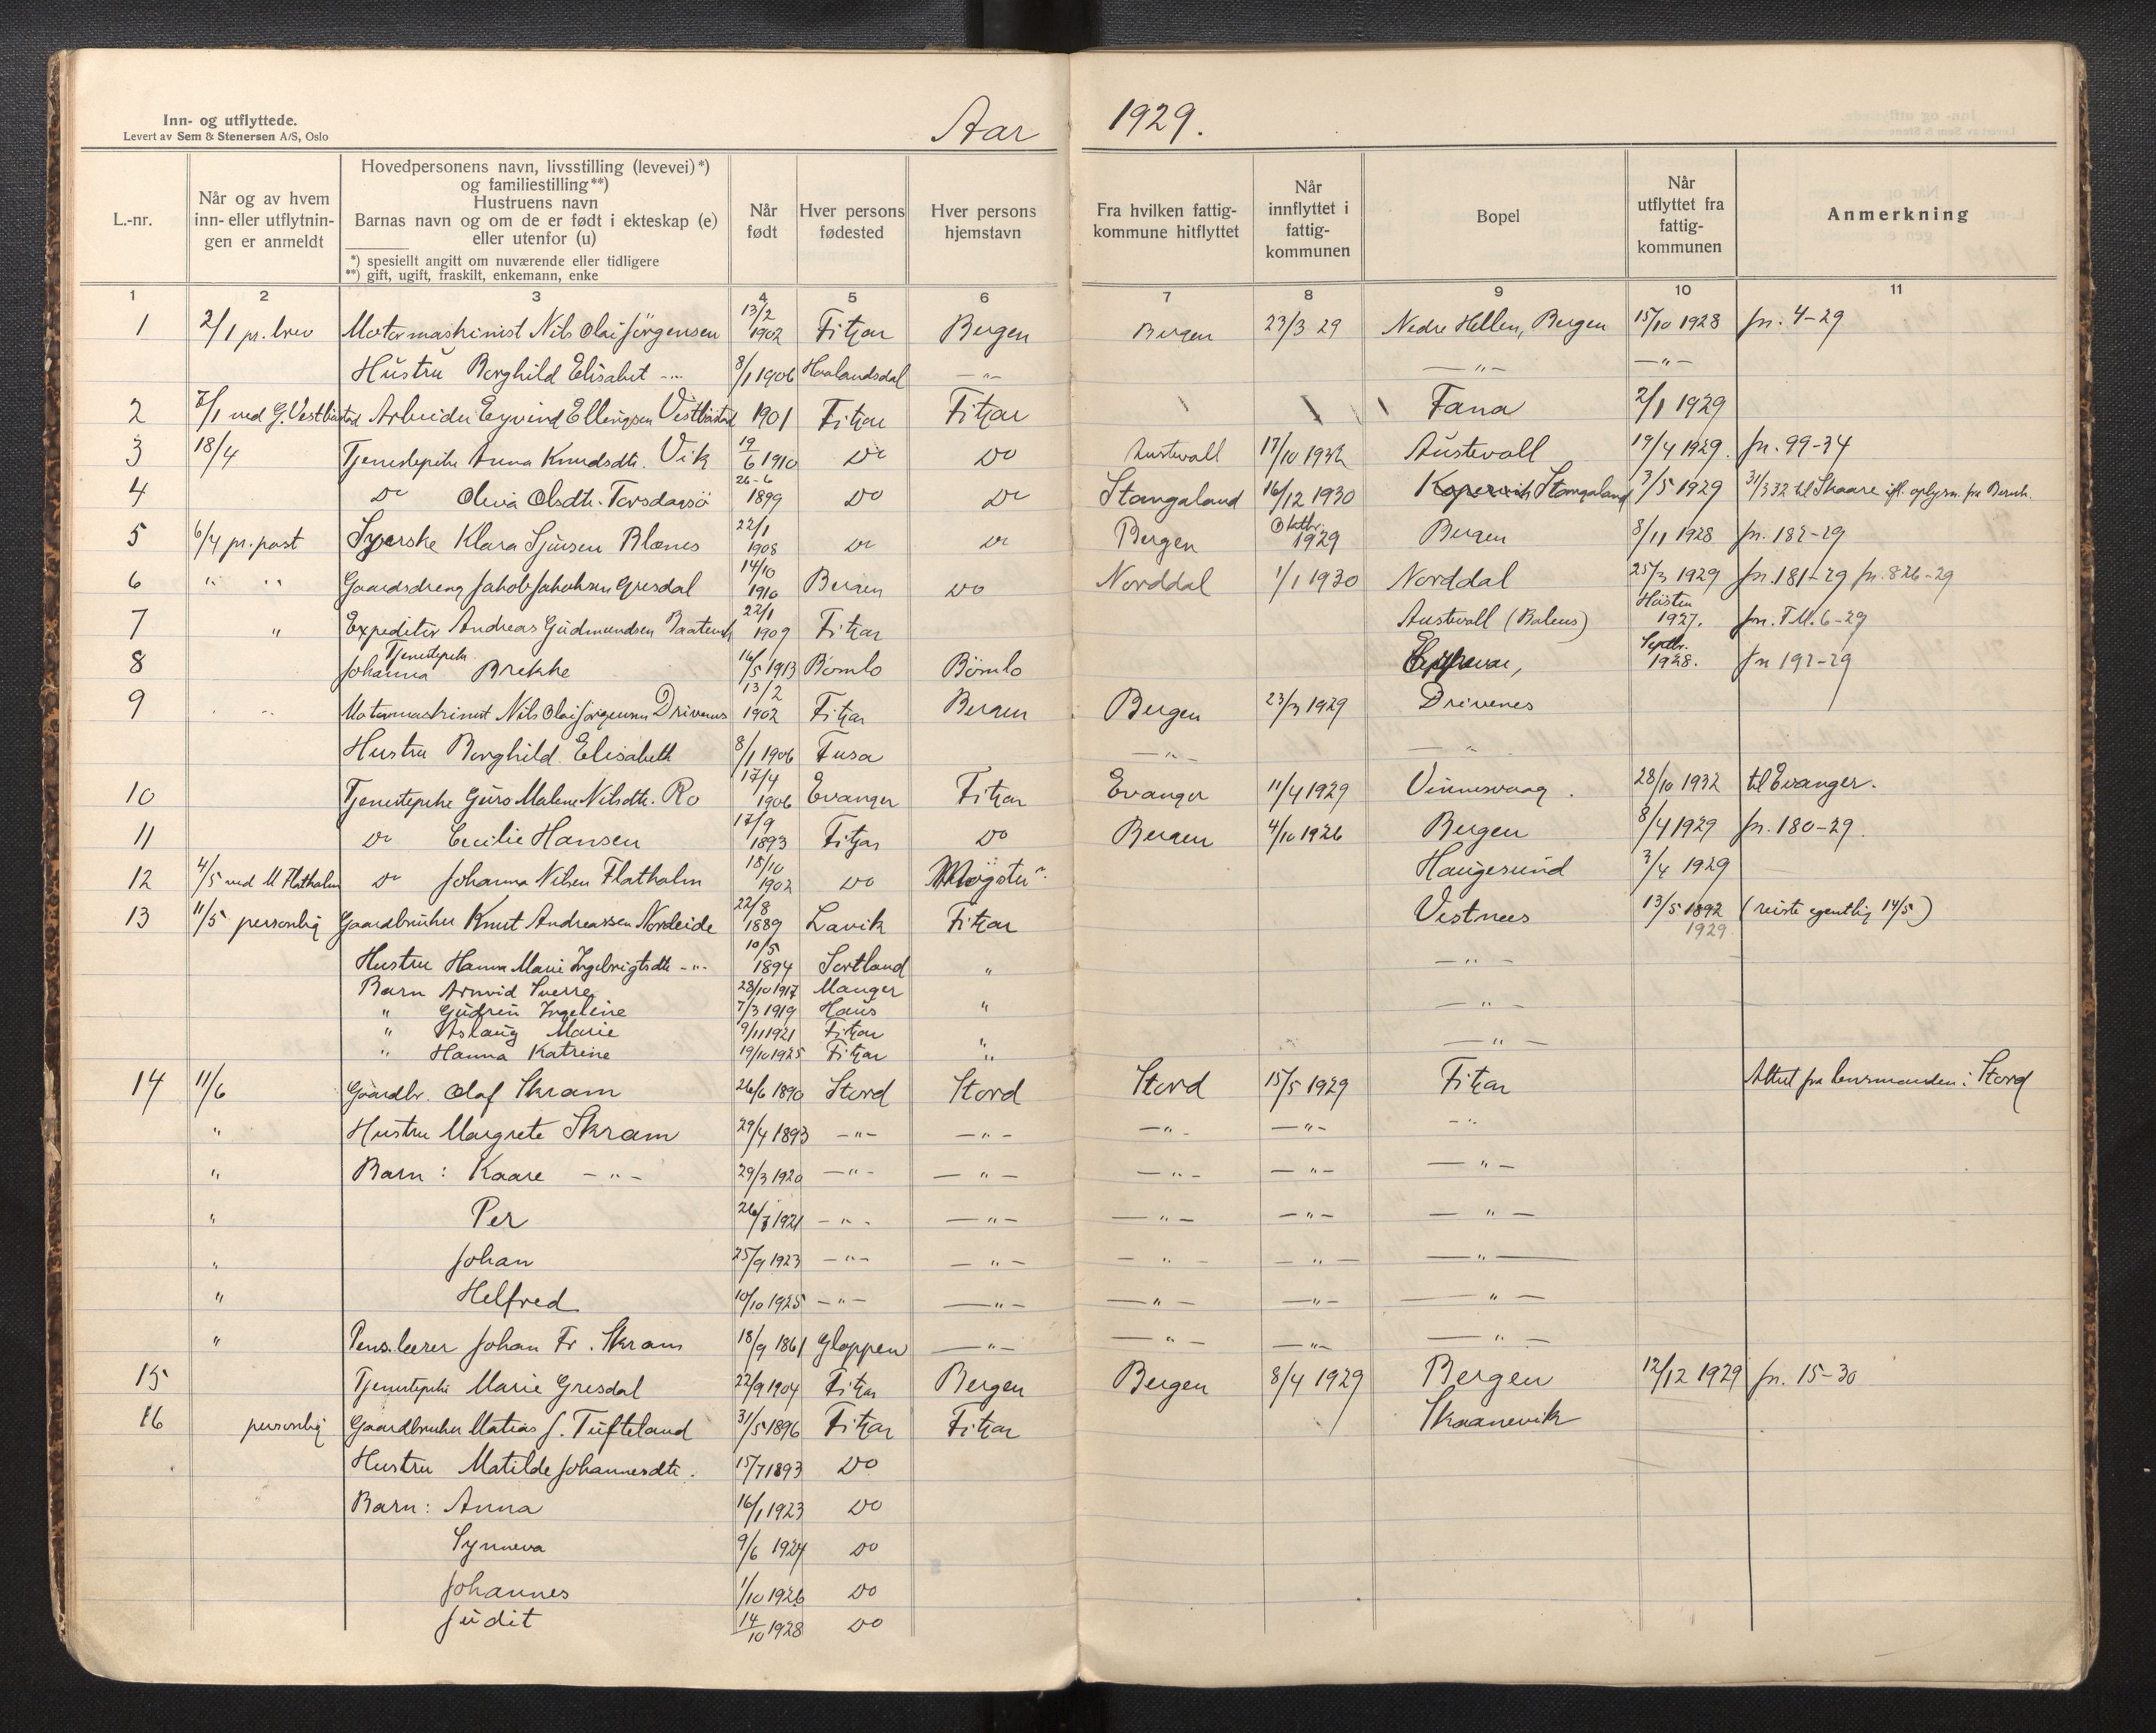 Inn- og utflyttede.
Levert av Sem & Stenersen A/S, Oslo
Aar 1929.
L.-nr.
Når og av hvem inn- eller utflytnin- gen er anmeldt
Hovedpersonens navn, livsstilling (levevei)*)
og familiestilling**)
Hustruens navn
Barnas navn og om de er født i ekteskap (e)
eller utenfor (u)
*) spesiellt angitt om nuværende eller tidligere
**) gift, ugift, fraskilt, enkemann, enke
Når født
Hver persons fødested
Hver persons hjemstavn
Fra hvilken fattig- kommune hitflyttet
Når innflyttet i fattig- kommunen
Bopel
Når utflyttet fra fattig- kommunen
Anmerkning
1 2 3 4 5 6 7 8 9 10 11
1 2/1 pr. brev Motormaskinist Nils Olai Jörgensen 13/2 1902 Fitjar Bergen Bergen 23/3 29 Nedre Hellen, Bergen 15/10 1928 jn. 4-29
Hustru Borghild Elisabet -"- 8/1 1906 Haalandsdal -"- -"- -"-
2 7/1 ved G. Vestbøstad Arbeider Eyvind Ellingsen Vestbøstad 1901 Fitjar Fitjar Fana 2/1 1929
3 18/4 Tjenestepike Anna Knudsdtr. Vik 19/6 1910 Do Do Austevoll 17/10 1932 Austevoll 19/4 1929. jn. 99-34
4 Do Oliva Olsdtr. Torsdagsö 26-6 1899 Do Do Stangaland 16/12 1930 Kopervik Stangaland 3/5 1929 31/3 32 til Skaare ifl. oplysn. fra Bernh.
5 6/4 pr. post Syerske Klara Sjursen Blænes 22/1 1908 Do Do Bergen Oktbr. 1929 Bergen 8/11 1928 jn. 182-29
6 " " Gaardsdreng Jakob Jakobsen Gresdal 14/10 1910 Bergen Do Norddal 1/1 1930 Norddal 25/3 1929 jn. 181-29 jn. 826-29
7 " Expeditör Andreas Gudmundsen Baatevik 22/1 1909 Fitjar Austevoll (Bakens) Hösten 1927. jn. F.M. 6-29
8 Tjenestepik. Johanna Brekke 16/5 1913 Bömlo Bömlo Septbr. 1928. jn 192-29
9 " " Motormaskinist Nils Olai Jörgensen Drivenes 13/2 1902 Fitjar Bergen Bergen 23/3 1929 Drivenes
Hustru Borghild Elisabeth 8/1 1906 Fusa -"- -"-
10 Tjenestepike Guro Malene Nilsdtr. Ro 17/4 1906 Evanger Fitjar Evanger 11/4 1929 Vinnesvaag. 28/10 1932 til Evanger.
11 Do Cecilie Hansen 17/9 1893 Fitjar Do Bergen 4/10 1926 Bergen 8/4 1929 jn. 180-29.
12 4/5 ved M Flatholm Do Johanna Nilsen Flatholm 18/10 1902 Do Møgster Haugesund 3/4 1929
13 11/5 personlig Gaardbruker Knut Andreassen Nordeide 22/8 1889 Lavik Fitjar Vestnes 13/5 1892 1929 (reiste egentlig 14/5)
Hustru Hanna Marie Ingebrigtsdtr -"- 10/5 1894 Sortland " -"-
Barn Arnvid Sverre 28/10 1917 Manger
" Gudrun Ingeline 7/3 1919 Haus " -"-
" Aslaug Marie 9/11 1921 Fitjar "
" Hanna Katrine 19/10 1925 Fitjar " -"-
14 11/6 Gaardbr. Olaf Skram 26/6 1890 Stord Stord Stord 15/5 1929 Fitjar Attest fra lensmanden i Stord
" Hustru Margrete Skram 29/4 1893 -"- -"- -"- -"- -"-
" Barn: Kaare -"- 29/3 1920 -"- -"- -"- -"- -"-
" Per 26/7 1921 -"- -"- -"- -"- -"-
" Johan 25/9 1923 -"- -"- -"- -"- -"-
" Helfred 10/10 1925 -"- -"- -"- -"- -"-
" Pens. lærer Johan Fr. Skram 18/9 1861 Gloppen -"- -"- -"- -"-
15 Tjenestepike Marie Gresdal 22/9 1904 Fitjar Bergen Bergen 8/4 1929 Bergen 12/12 1929 jn. 15-30
16 personlig Gaardbruker Matias J. Tufteland 31/5 1896 Fitjar Fitjar Skaanevik
Hustru Matilde Johannesdtr. 15/7 1893 Do
Barn: Anna 16/1 1923 Do
Synneva 9/6 1924 Do
Johannes 1/10 1926 Do
Judit 14/10 1928 Do